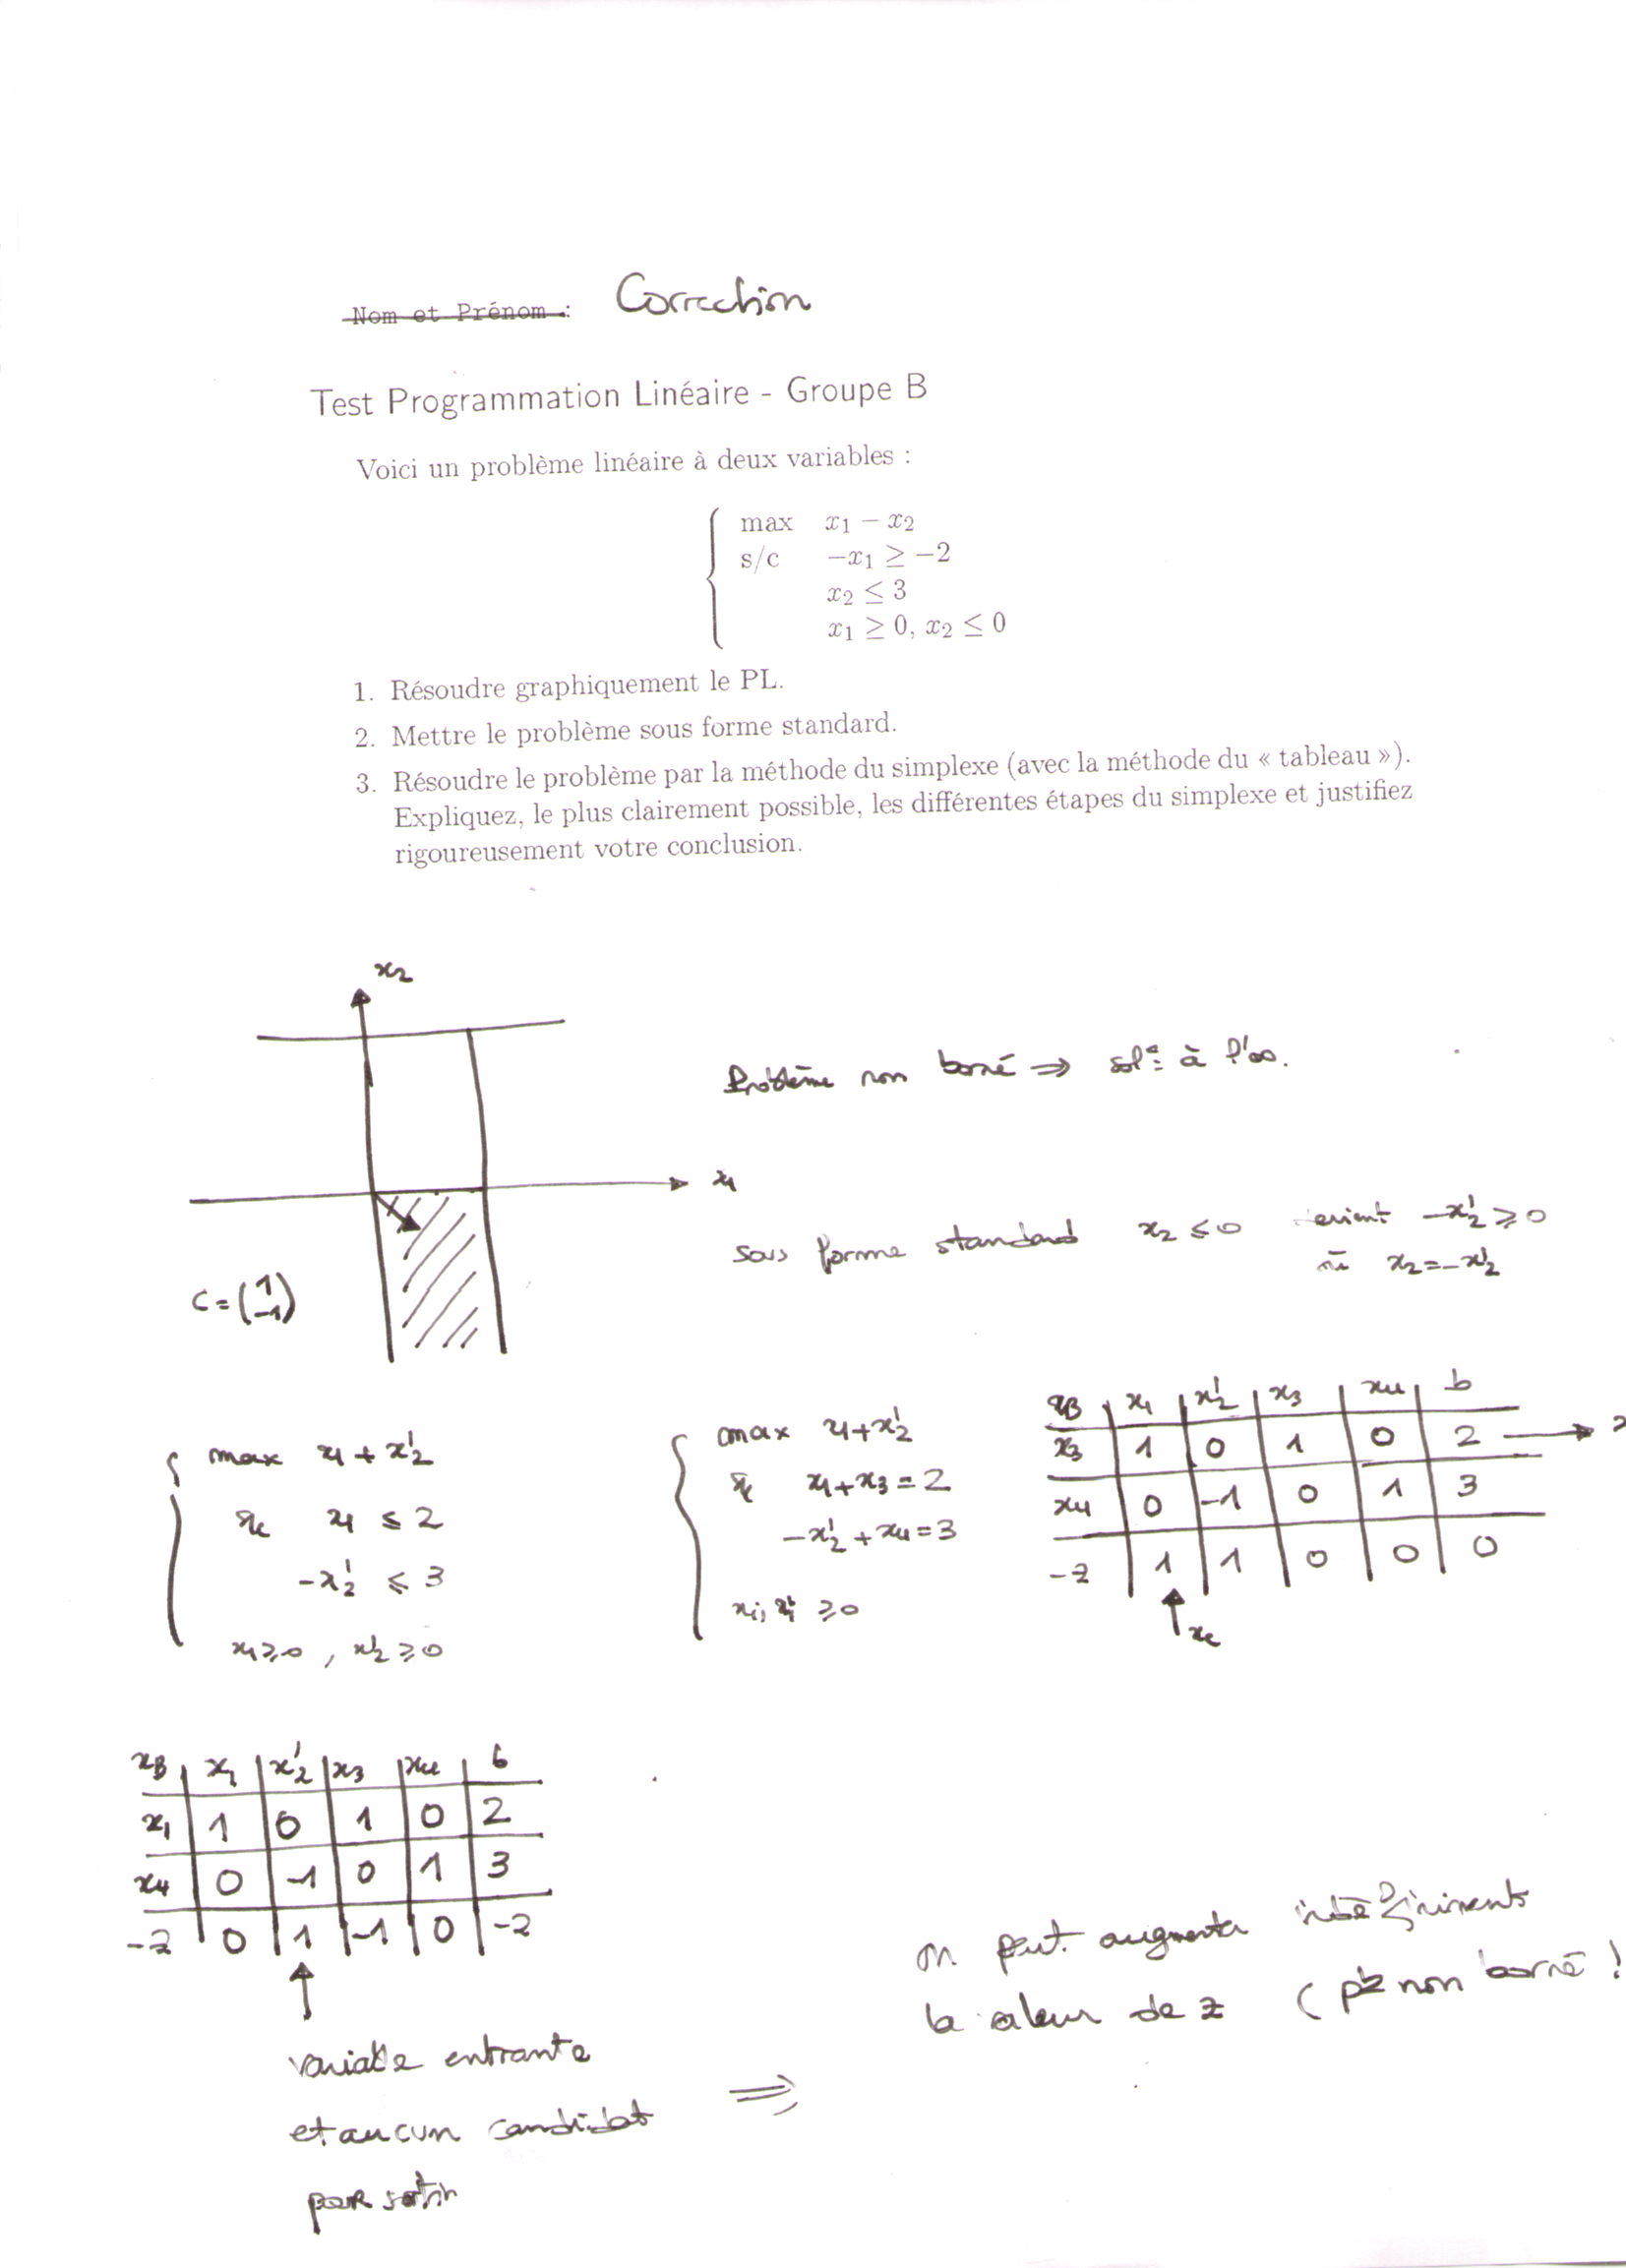 Nom et Prénom : Correction
Test Programmation Linéaire - Groupe B
Voici un problème linéaire à deux variables :
max x1 − x2
s/c −x1 ≥ −2
x2 ≤ 3
x1 ≥ 0, x2 ≤ 0
1. Résoudre graphiquement le PL.
2. Mettre le problème sous forme standard.
3. Résoudre le problème par la méthode du simplexe (avec la méthode du « tableau »).
Expliquez, le plus clairement possible, les différentes étapes du simplexe et justifiez
rigoureusement votre conclusion.
x2
Problème non borné ⇒ sol° à l'∞.
x1
sous forme standard x2 ≤ 0 devient −x'2 ≥ 0
x2 = −x'2
C = (1 −1)
max x1 + x'2
s/c x1 ≤ 2
−x'2 ≤ 3
x1 ≥ 0 , x'2 ≥ 0
max x1 + x'2
s/c x1 + x3 = 2
−x'2 + x4 = 3
xi, x'i ≥ 0
xB x1 x'2 x3 x4 b
x3 1 0 1 0 2 →
x4 0 −1 0 1 3
−z 1 1 0 0 0
xB x1 x'2 x3 x4 b
x1 1 0 1 0 2
x4 0 −1 0 1 3
−z 0 1 −1 0 −2
variable entrante
et aucun candidat
pour sortir
⇒
on peut augmenter indéfiniment
la valeur de z (pb non borné !